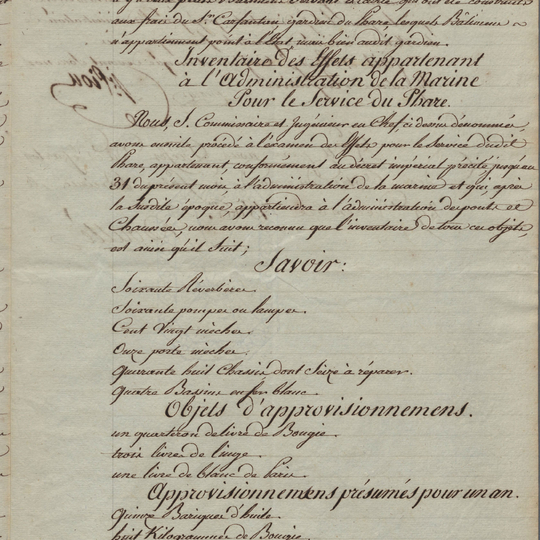 aux frais du Sr. Carfantan gardien du Phare, lesquels Bâtimens
n'appartiennent point à l'Etat mais bien audit gardien.
Inventaire des Effets appartenant
à l'Administration de la Marine
Pour le Service du Phare.
Nous, S. Commissaire et Ingénieur en Chef, ci dessus dénommés,
avons ensuite procédé à l'examen des Effets pour le Service dudit
Phare, appartenant, conformément au décret impérial précité jusqu'au
31 du présent mois à l'administration de la marine et qui, après
la Susdite époque, appartiendra à l'administration des ponts et
Chaussées, nous avons reconnu que l'inventaire de tous ces objets,
est ainsi qu'il Suit;
Savoir:
Soixante Réverbères.
Soixante pompes ou lampes.
Cent Vingt mèches.
Onze porte mèches.
Quarante huit Chassis dont Seize à réparer.
Quatre Bassins en fer blanc.
Objets d'approvisionnemens.
un quarteron de livre de Bougie.
trois livres de linge.
une livre de blanc de Paris.
Approvisionnemens présumés pour un an.
Quinze Bariques d'huile.
huit Kilogrammes de Bougie.